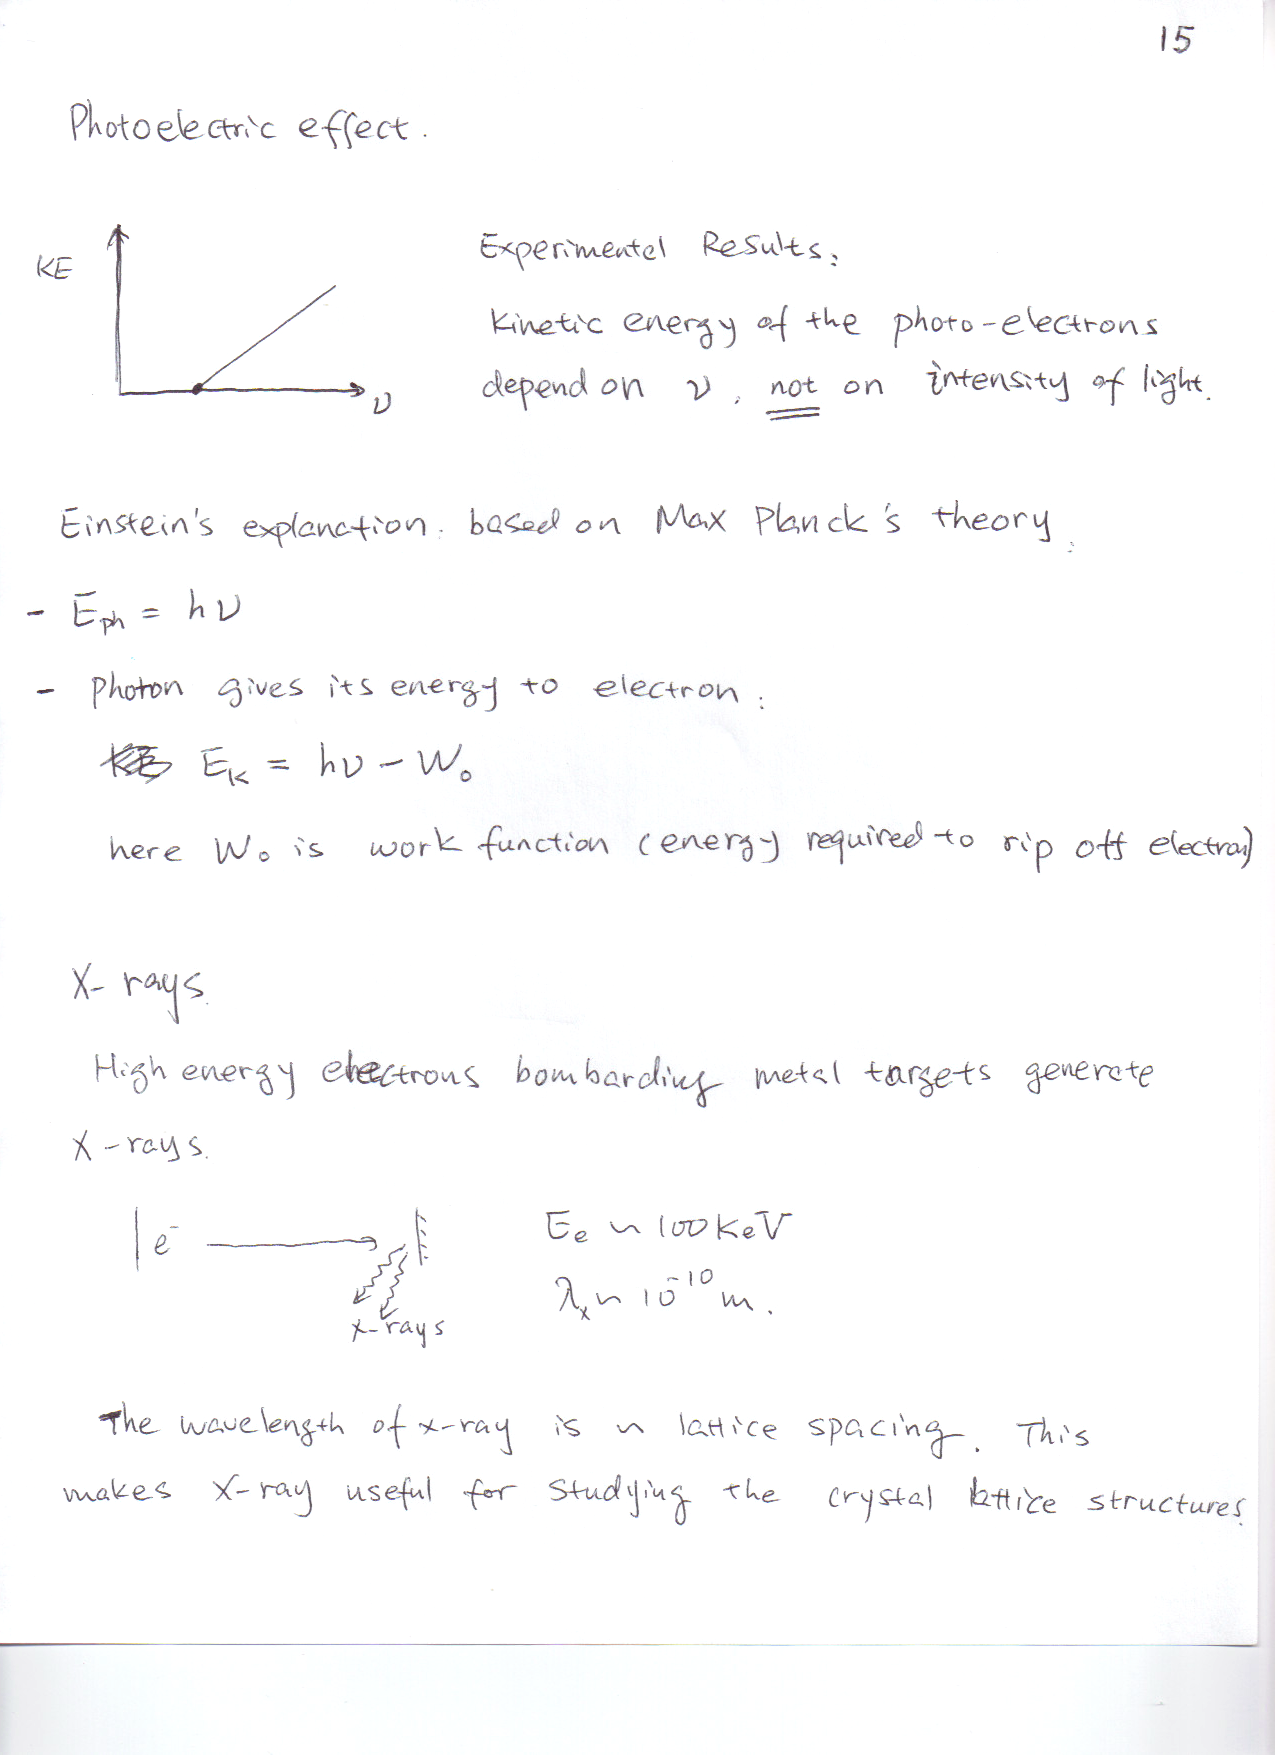 15
Photoelectric effect.
KE
ν
Experimental Results:
Kinetic energy of the photo-electrons
depend on ν, not on intensity of light.
Einstein's explanation. based on Max Planck's theory.
- Eph = hν
- Photon gives its energy to electron:
Ek = hν - W₀
here W₀ is work function (energy required to rip off electron)
X-rays.
High energy electrons bombarding metal targets generate
X-rays.
e⁻
x-rays
Ee ~ 100 KeV
λx ~ 10⁻¹⁰ m.
The wavelength of x-ray is ~ lattice spacing. This
makes X-ray useful for studying the crystal lattice structures.